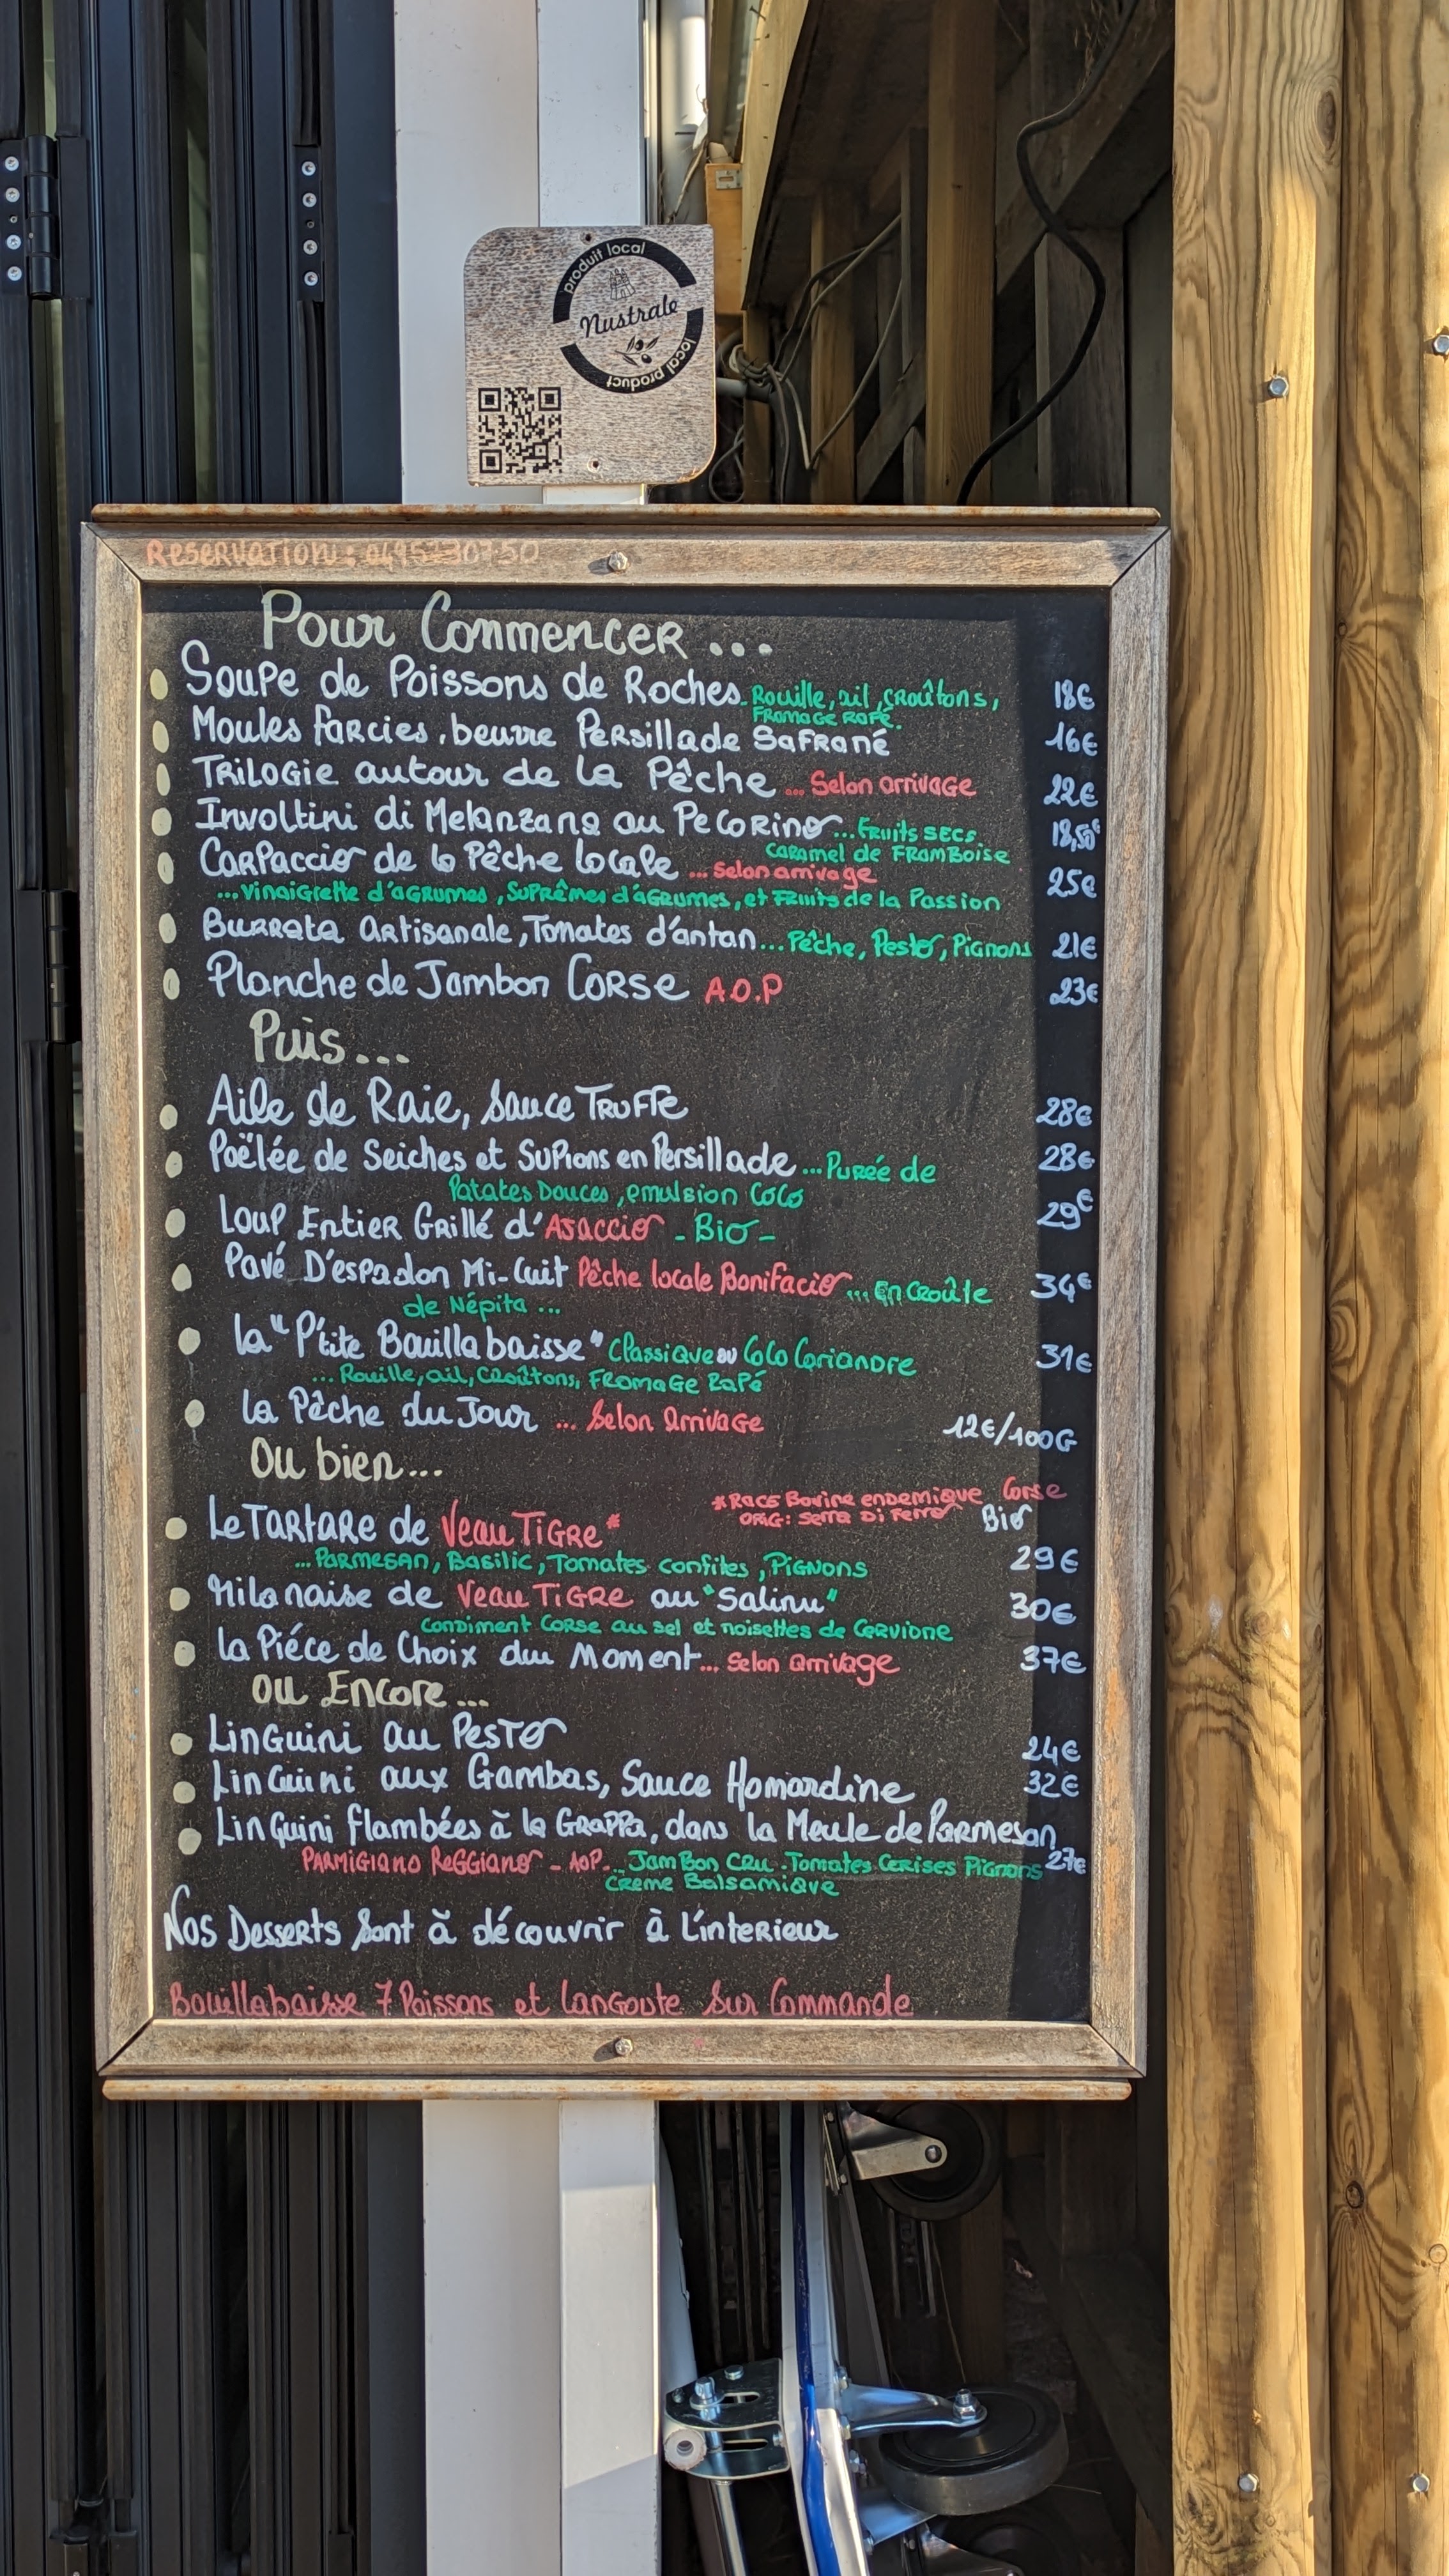 produit local
Nustrale
local product
Reservation: 0495730750
Pour Commencer ...
Soupe de Poissons de Roches Rouille, ail, croûtons, 18€
Fromage Rapé.
Moules farcies, beurre Persillade Safrané 16€
Trilogie autour de la Pêche ... Selon arrivage 22€
Involtini di Melanzana au Pecorino ... Fruits secs 18,50€
Caramel de Framboise
Carpaccio de la Pêche locale ... Selon arrivage 25€
... Vinaigrette d'agrumes, Suprêmes d'agrumes, et Fruits de la Passion
Burrata Artisanale, Tomates d'antan ... Pêche, Pesto, Pignons 21€
Planche de Jambon Corse A.O.P 23€
Puis ...
Aile de Raie, Sauce Truffe 28€
Poëlée de Seiches et Supions en Persillade ... Purée de 28€
Patates Douces, emulsion Coco
Loup Entier Grillé d'Ajaccio - Bio - 29€
Pavé D'espadon Mi-Cuit Pêche locale Bonifacio ... en croûte 34€
de Népita ...
La "P'tite Bouillabaisse" Classique ou Coco Coriandre 31€
... Rouille, ail, Croûtons, Fromage Rapé
La Pêche du Jour ... Selon Arrivage 12€/100G
Ou bien ...
*Race Bovine endemique Corse
Orig: Serra Di Ferro Bio
Le Tartare de Veau Tigre*
... Parmesan, Basilic, Tomates confites, Pignons 29€
Milanaise de Veau Tigre au "Salinu" 30€
Condiment Corse au sel et noisettes de Cervione
La Piéce de Choix du Moment ... Selon Arrivage 37€
Ou Encore ...
Linguini au Pesto 24€
Linguini aux Gambas, Sauce Homardine 32€
Linguini flambées à la Grappa, dans la Meule de Parmesan
Parmigiano Reggiano - AOP ... Jambon Cru. Tomates Cerises Pignons 27€
Creme Balsamique
Nos Desserts Sont à découvrir à L'interieur
Bouillabaisse 7 Poissons et Langouste Sur Commande